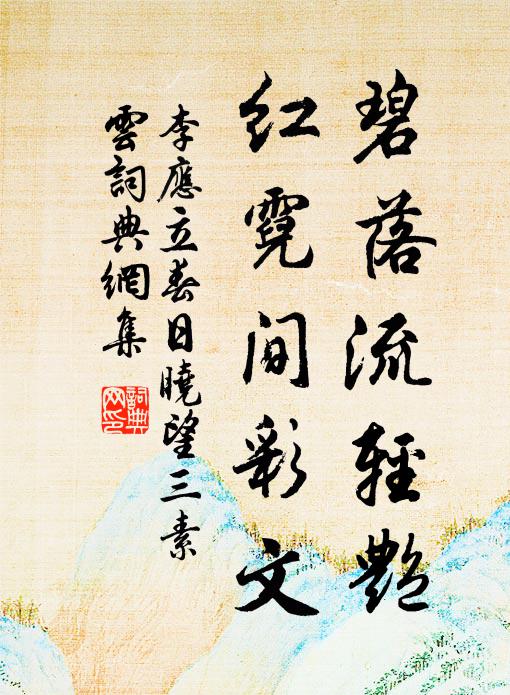 碧落流輕艷
紅霓間彩文
李應立春日曉望三素
雲詞典網集
詞典
网印